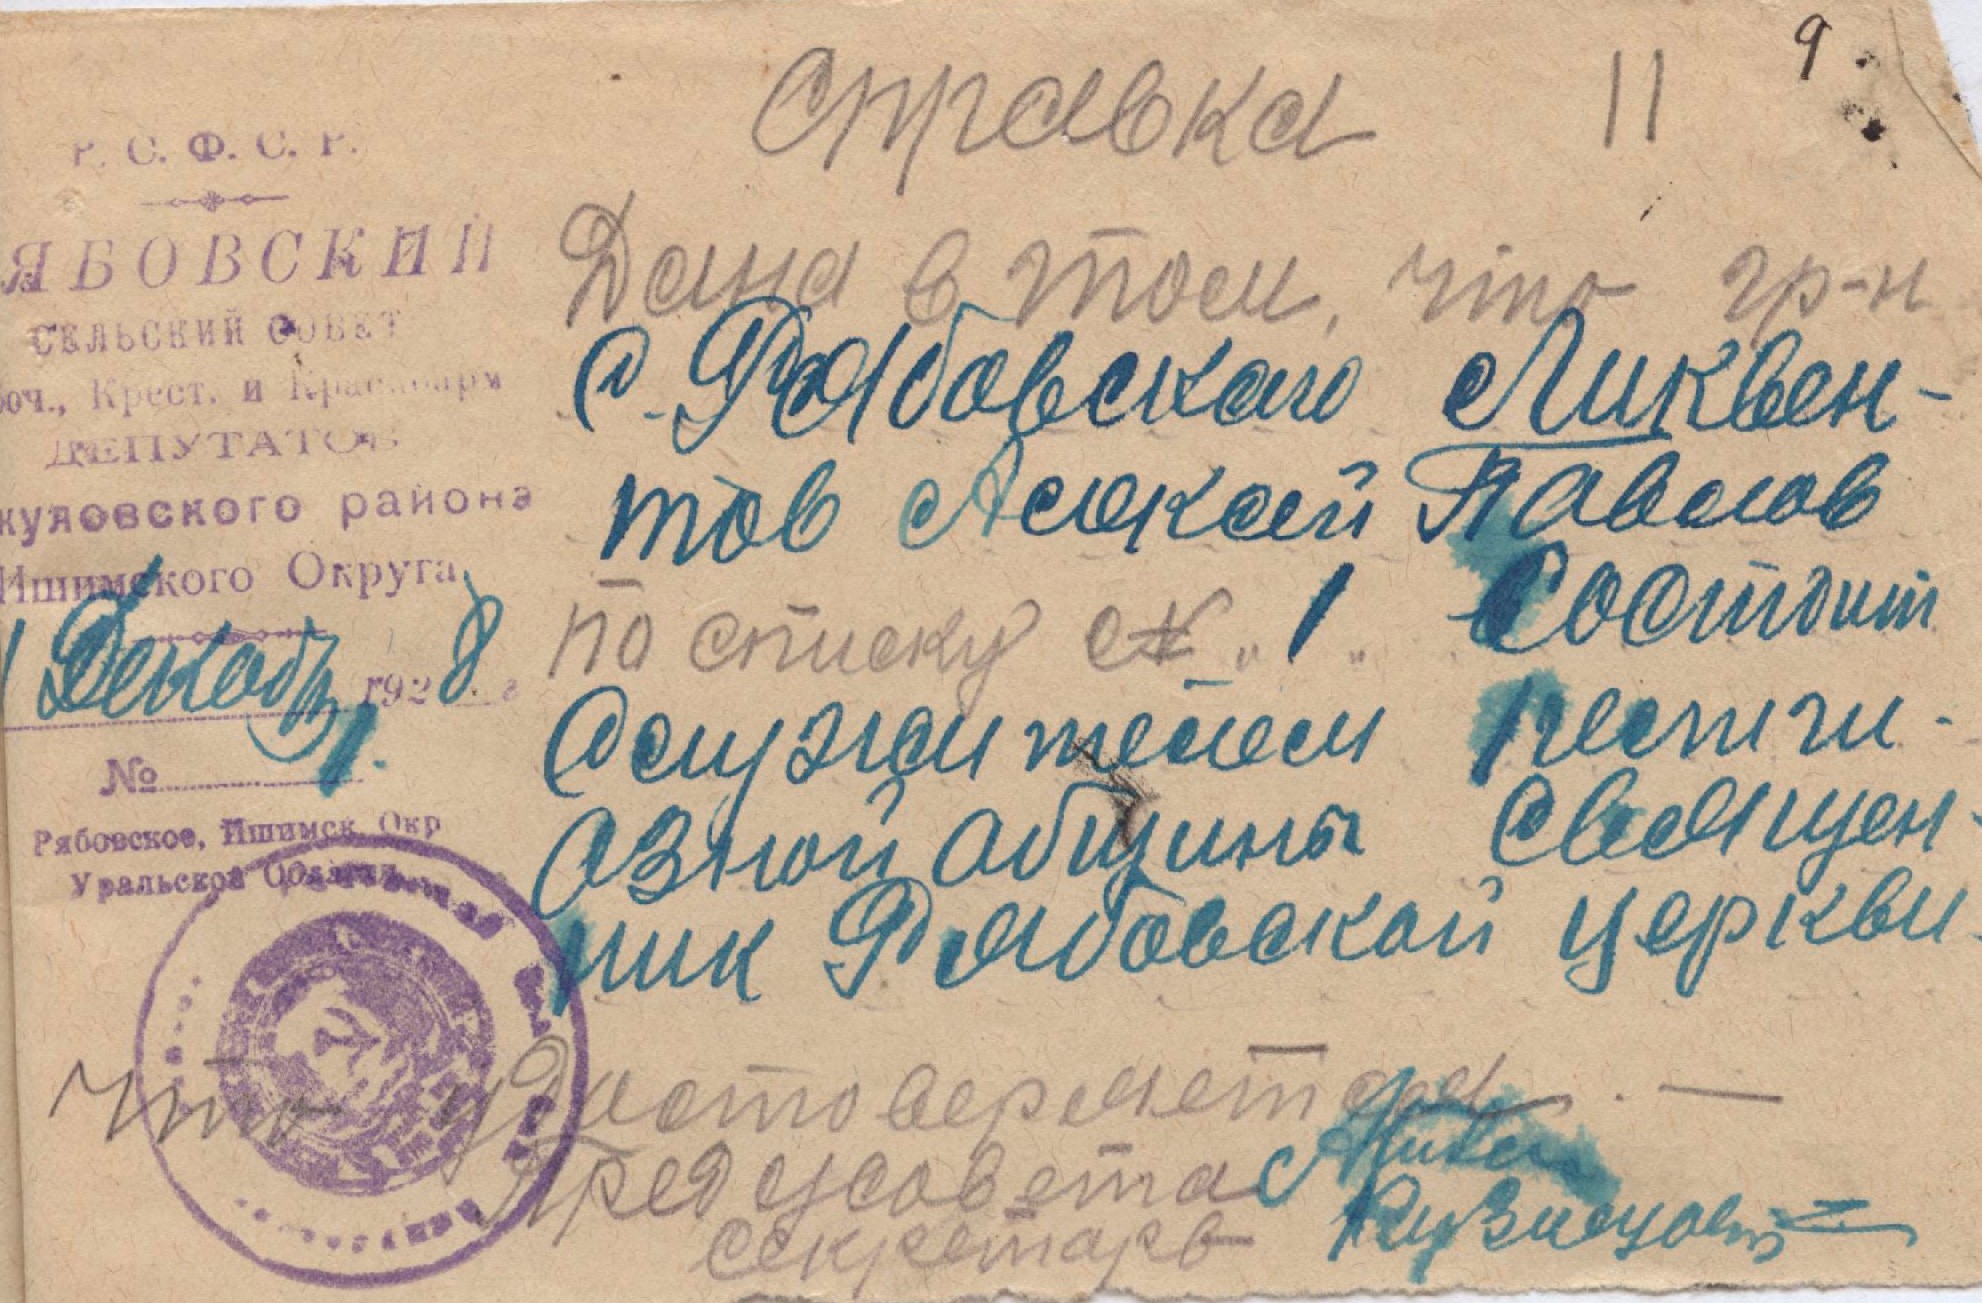 9
11
Справка
Р. С. Ф. С. Р.
ЯБОВСКИЙ
СЕЛЬСКИЙ СОВЕТ
боч., Крест. и Красноарм
ДЕПУТАТОВ
жуловского района
Ишимского Округа
Декабря 1928 г
№ 1.
Рябовское, Ишимск. Окр
Уральской Области
Дана в том, что гр-н
с. Рябовского Ликвен-
тов Алексей Павлов
по списку № „1" Состоит
Служителем религи-
озной общины Священ-
ник Рябовской церкви.
что удостоверяется. —
Пред с/совета
секретарь